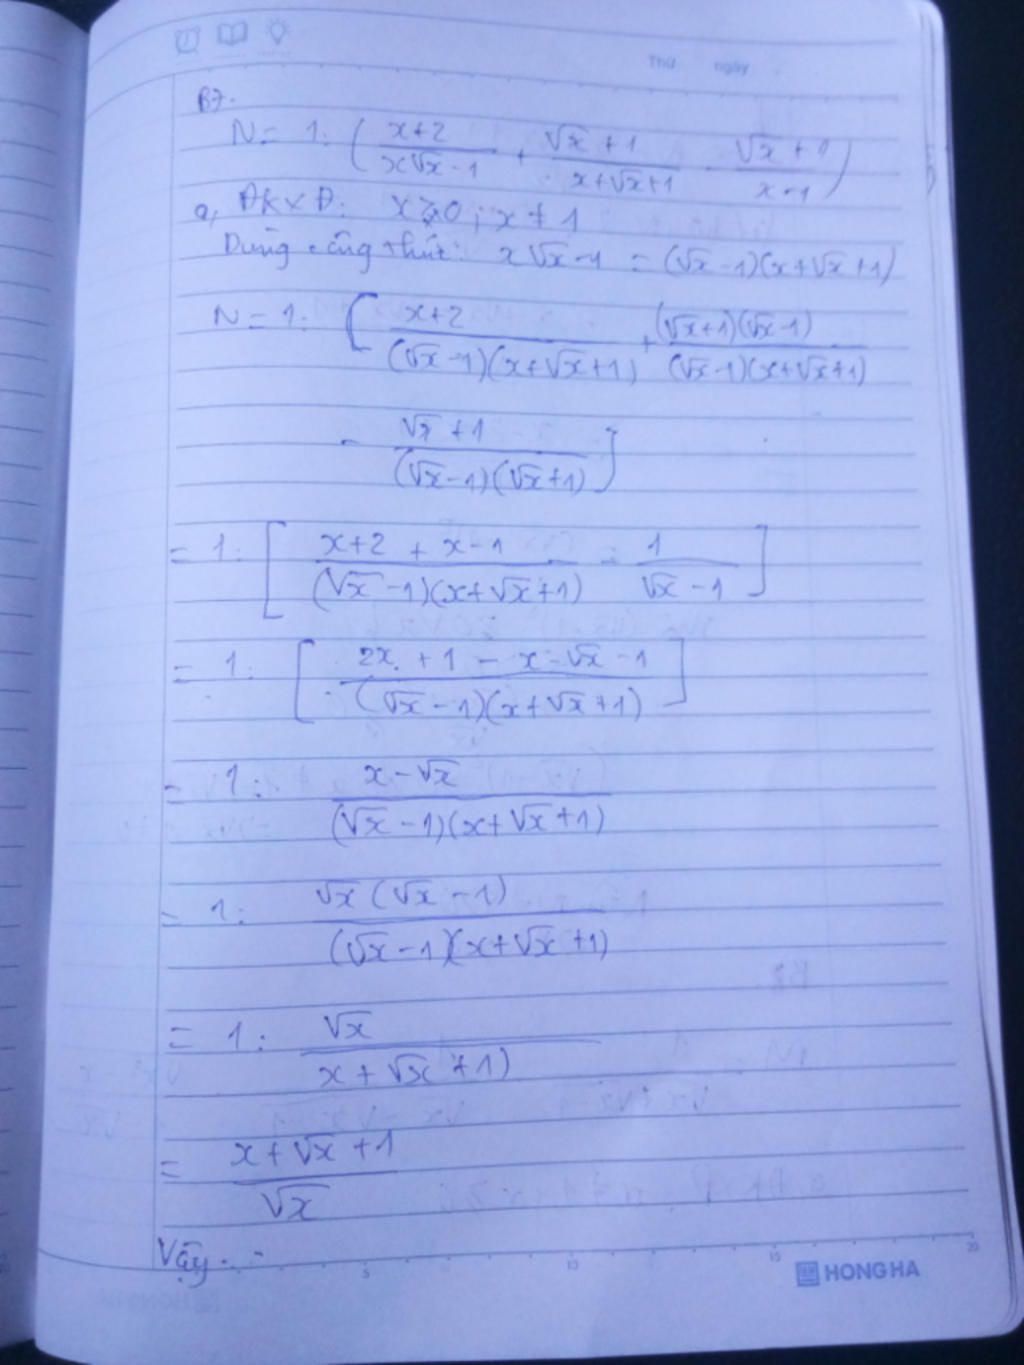 Thứ ngày
B7.
N = 1 : ( x+2 / x√x - 1 + √x + 1 / x+√x+1 - √x + 1 / x-1 )
a, ĐKXĐ: x ≥ 0 ; x ≠ 1
Dùng công thức: x√x - 1 = (√x - 1)(x+√x+1)
N = 1 : [ x+2 / (√x - 1)(x+√x+1) + (√x+1)(√x-1) / (√x-1)(x+√x+1)
- √x + 1 / (√x-1)(√x+1) ]
= 1 : [ x+2 + x-1 / (√x - 1)(x+√x+1) - 1 / √x - 1 ]
= 1 : [ 2x + 1 - x - √x - 1 / (√x - 1)(x+√x+1) ]
= 1 : x - √x / (√x - 1)(x+√x+1)
= 1 : √x (√x - 1) / (√x - 1)(x+√x+1)
= 1 : √x / x + √x + 1)
= x + √x + 1 / √x
Vậy...
5 10 15 20
HONG HA